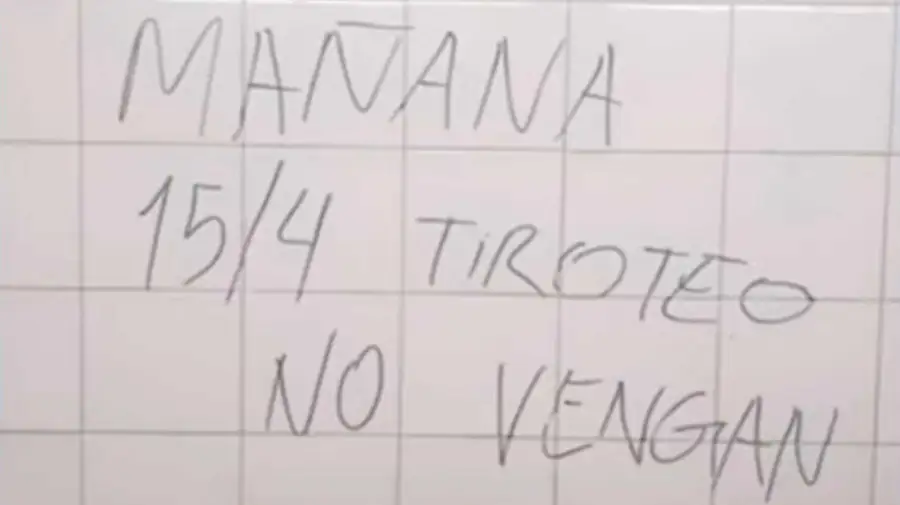 MAÑANA
15/4 TiROTEO
NO VENGAN